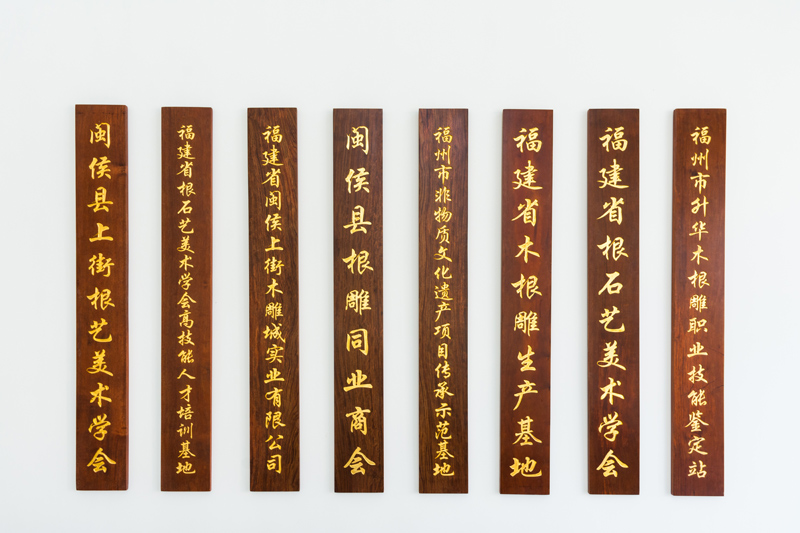 闽侯县上街根艺美术学会
福建省根石艺美术学会高技能人才培训基地
福建省闽侯上街木雕城实业有限公司
闽侯县根雕同业商会
福州市非物质文化遗产项目传承示范基地
福建省木根雕生产基地
福建省根石艺美术学会
福州市升华木根雕职业技能鉴定站